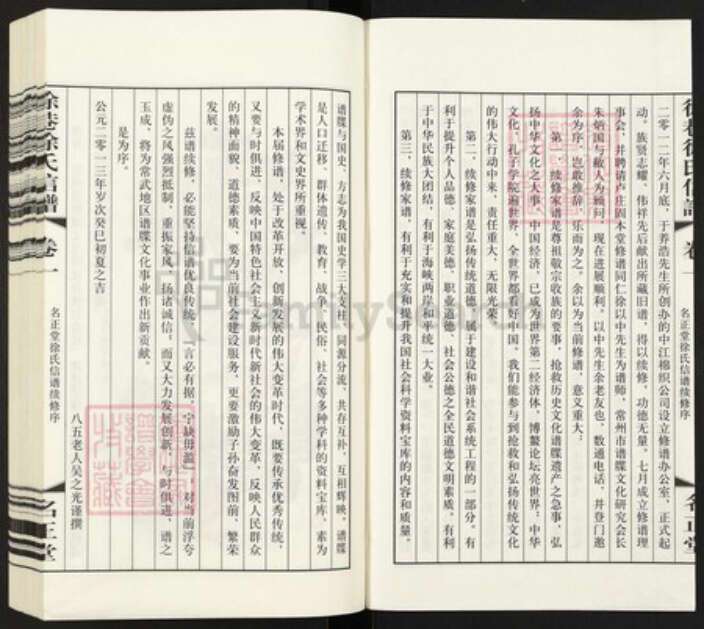 二零一二年六月底，于荞浩先生所创办的中江棉织公司设立修谱办公室，正式起
动。族贤志耀、伟祥先后献出所藏旧谱，得以续修，功德无量。七月成立修谱理
事会，并聘请卢庄固本堂修谱同仁徐以中先生为谱师，常州市谱牒文化研究会长
朱炳国与敝人为顾问，现在进展顺利。以中先生余老友也，数通电话，并登门邀
余为序，岂敢推辞，乐而为之。余以为当前修谱，意义重大：
第一、续修家谱是尊祖敬宗收族的要事，抢救历史文化谱牒遗产之急事，弘
扬中华文化之大事。中国经济，已成为世界第二经济体，博鳌论坛亮世界；中华
文化，孔子学院遍世界，全世界都看好中国，我们能参与到抢救和弘扬传统文化
的伟大行动中来，责任重大，无限光荣。
第二、续修家谱是弘扬传统道德，属于建设和谐社会系统工程的一部分。有
利于提升个人品德、家庭美德、职业道德、社会公德之全民道德文明素质，有利
于中华民族大团结，有利于海峡两岸和平统一大业。
第三、续修家谱，有利于充实和提升我国社会科学资料宝库的内容和质量。
徐巷徐氏信谱
卷一
名正堂徐氏信谱续修序
名正堂
谱牒与国史、方志为我国史学三大支柱，同源分流，共存互补，互相辉映。谱牒
是人口迁移、群体遗传、教育、战争、民俗、社会等多种学科的资料宝库，素为
学术界和文史界所重视。
本届修谱，处于改革开放、创新发展的伟大变革时代，既要传承优秀传统，
又要与时俱进，反映中国特色社会主义新时代新社会的伟大变革，反映人民群众
的精神面貌、道德素质，要为当前社会建设服务，更要激励子孙奋发图前、繁荣
发展。
兹谱续修，必能坚持信谱优良传统，言必有据，宁缺毋滥，对当前浮夸
虚伪之风强烈抵制，重振家风，扬诸诚信，而又大力发展创新，与时俱进，谱之
玉成，将为常武地区谱牒文化事业作出新贡献。
是为序。
公元二零一三年岁次癸巳初夏之吉
八五老人吴之光谨撰
徐巷徐氏信谱
卷一
名正堂徐氏信谱续修序
名正堂
FamilySearch